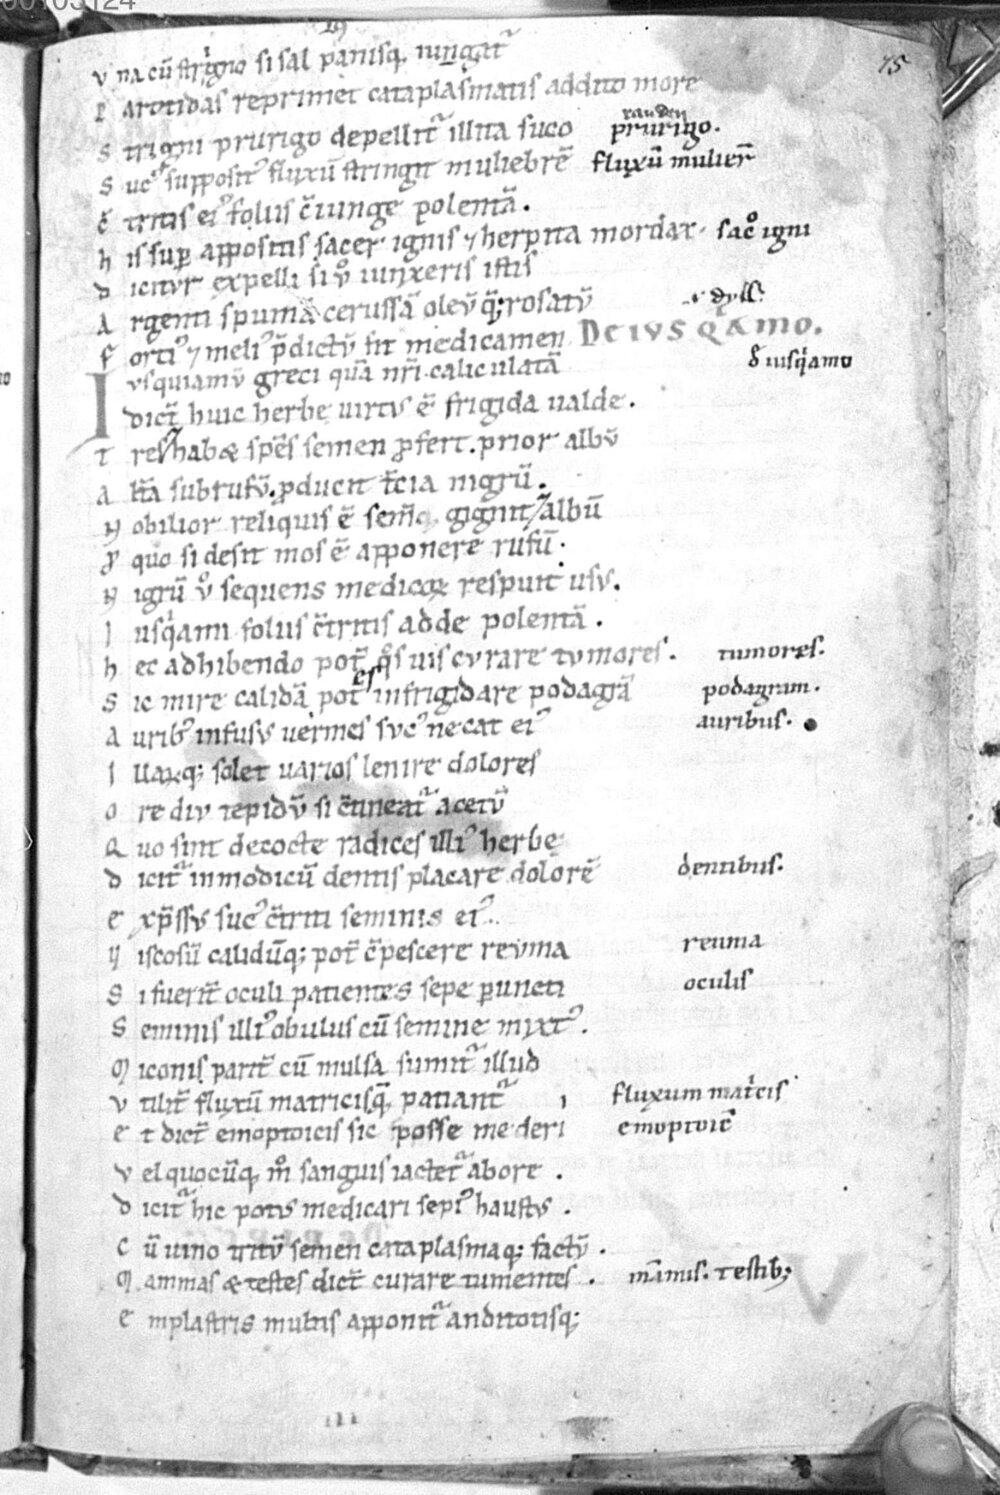 00105124
75
V na cū strigno si sal panisq; iungat᷑
P arotidas reprimet cataplasmatis addito more
S trigni prurigo depellit᷑ illita suco prurigo.
S ucꝰ suppositꝰ fluxū stringit muliebrē fluxū mulier̄
C̄ tritis eiꝰ foliis c̄iunge polentā.
h is sup̄ appositis sacer ignis ⁊ herpita mordax. sac̊ igni
D icitur expelli si v̊ iunxeris istis
A rgenti spumā cerussā oleū q̄; rosatū
F ortiꝰ ⁊ meliꝰ p̄dictū fit medicamen DE IUSQAMO.
Iusquiamū greci quā nr̄i caliculatā d̄ iusq̄amo
Dict̄ huic herbe uirtus ē frigida ualde.
T res habæ sp̄es semen p̄fert. prior albū
A lt̄a subrufū. p̄ducit t̄cia nigrū.
N obilior reliquis ē sem̄q; gignit albū
Q̄ quo si desit mos ē apponere rufū.
N igrū v̊ sequens medicoꝝ respuit usū.
I usq̄ami foliis c̄tritis adde polentā.
h ec adhibendo pot̄ q̊s uis curare tumores. tumores.
S ic mire calidā potes infrigidare podagrā podagram.
A uribꝰ infusus uermes sucꝰ necat eiꝰ auribus.
I llarūq; solet uarios lenire dolores
O re diu tepidū si c̄tineat᷑ acetū
Q uo sint decocte radices illiꝰ herbe
D icit᷑ inmodicū dentis placare dolorē dentibus.
E xp̄ssus sucꝰ c̄triti seminis eiꝰ.
V iscosū calidūq; pot̄ c̄pescere reuma reuma
S i fuerit̄ oculi patientes sepe p̄uncti oculis
S eminis illiꝰ obulus cū semine mixtꝰ.
M iconis parit̄ cū mulsa sumit᷑ illud
V tilit̄ fluxū matricisq; patiant᷑ fluxum mat̄cis
E t dict̄ emoptoicis sic posse mederi emoptoic̄
V el quocūq; m̊ sanguis iactet᷑ ab ore.
D icit᷑ hic potus medicari sepiꝰ haustus.
C ū uino tritū semen cataplasmaq; factū.
M ammas & testes dict̄ curare tumentes. mamis. testib;
E mplastris multis apponit᷑ anditotisq;